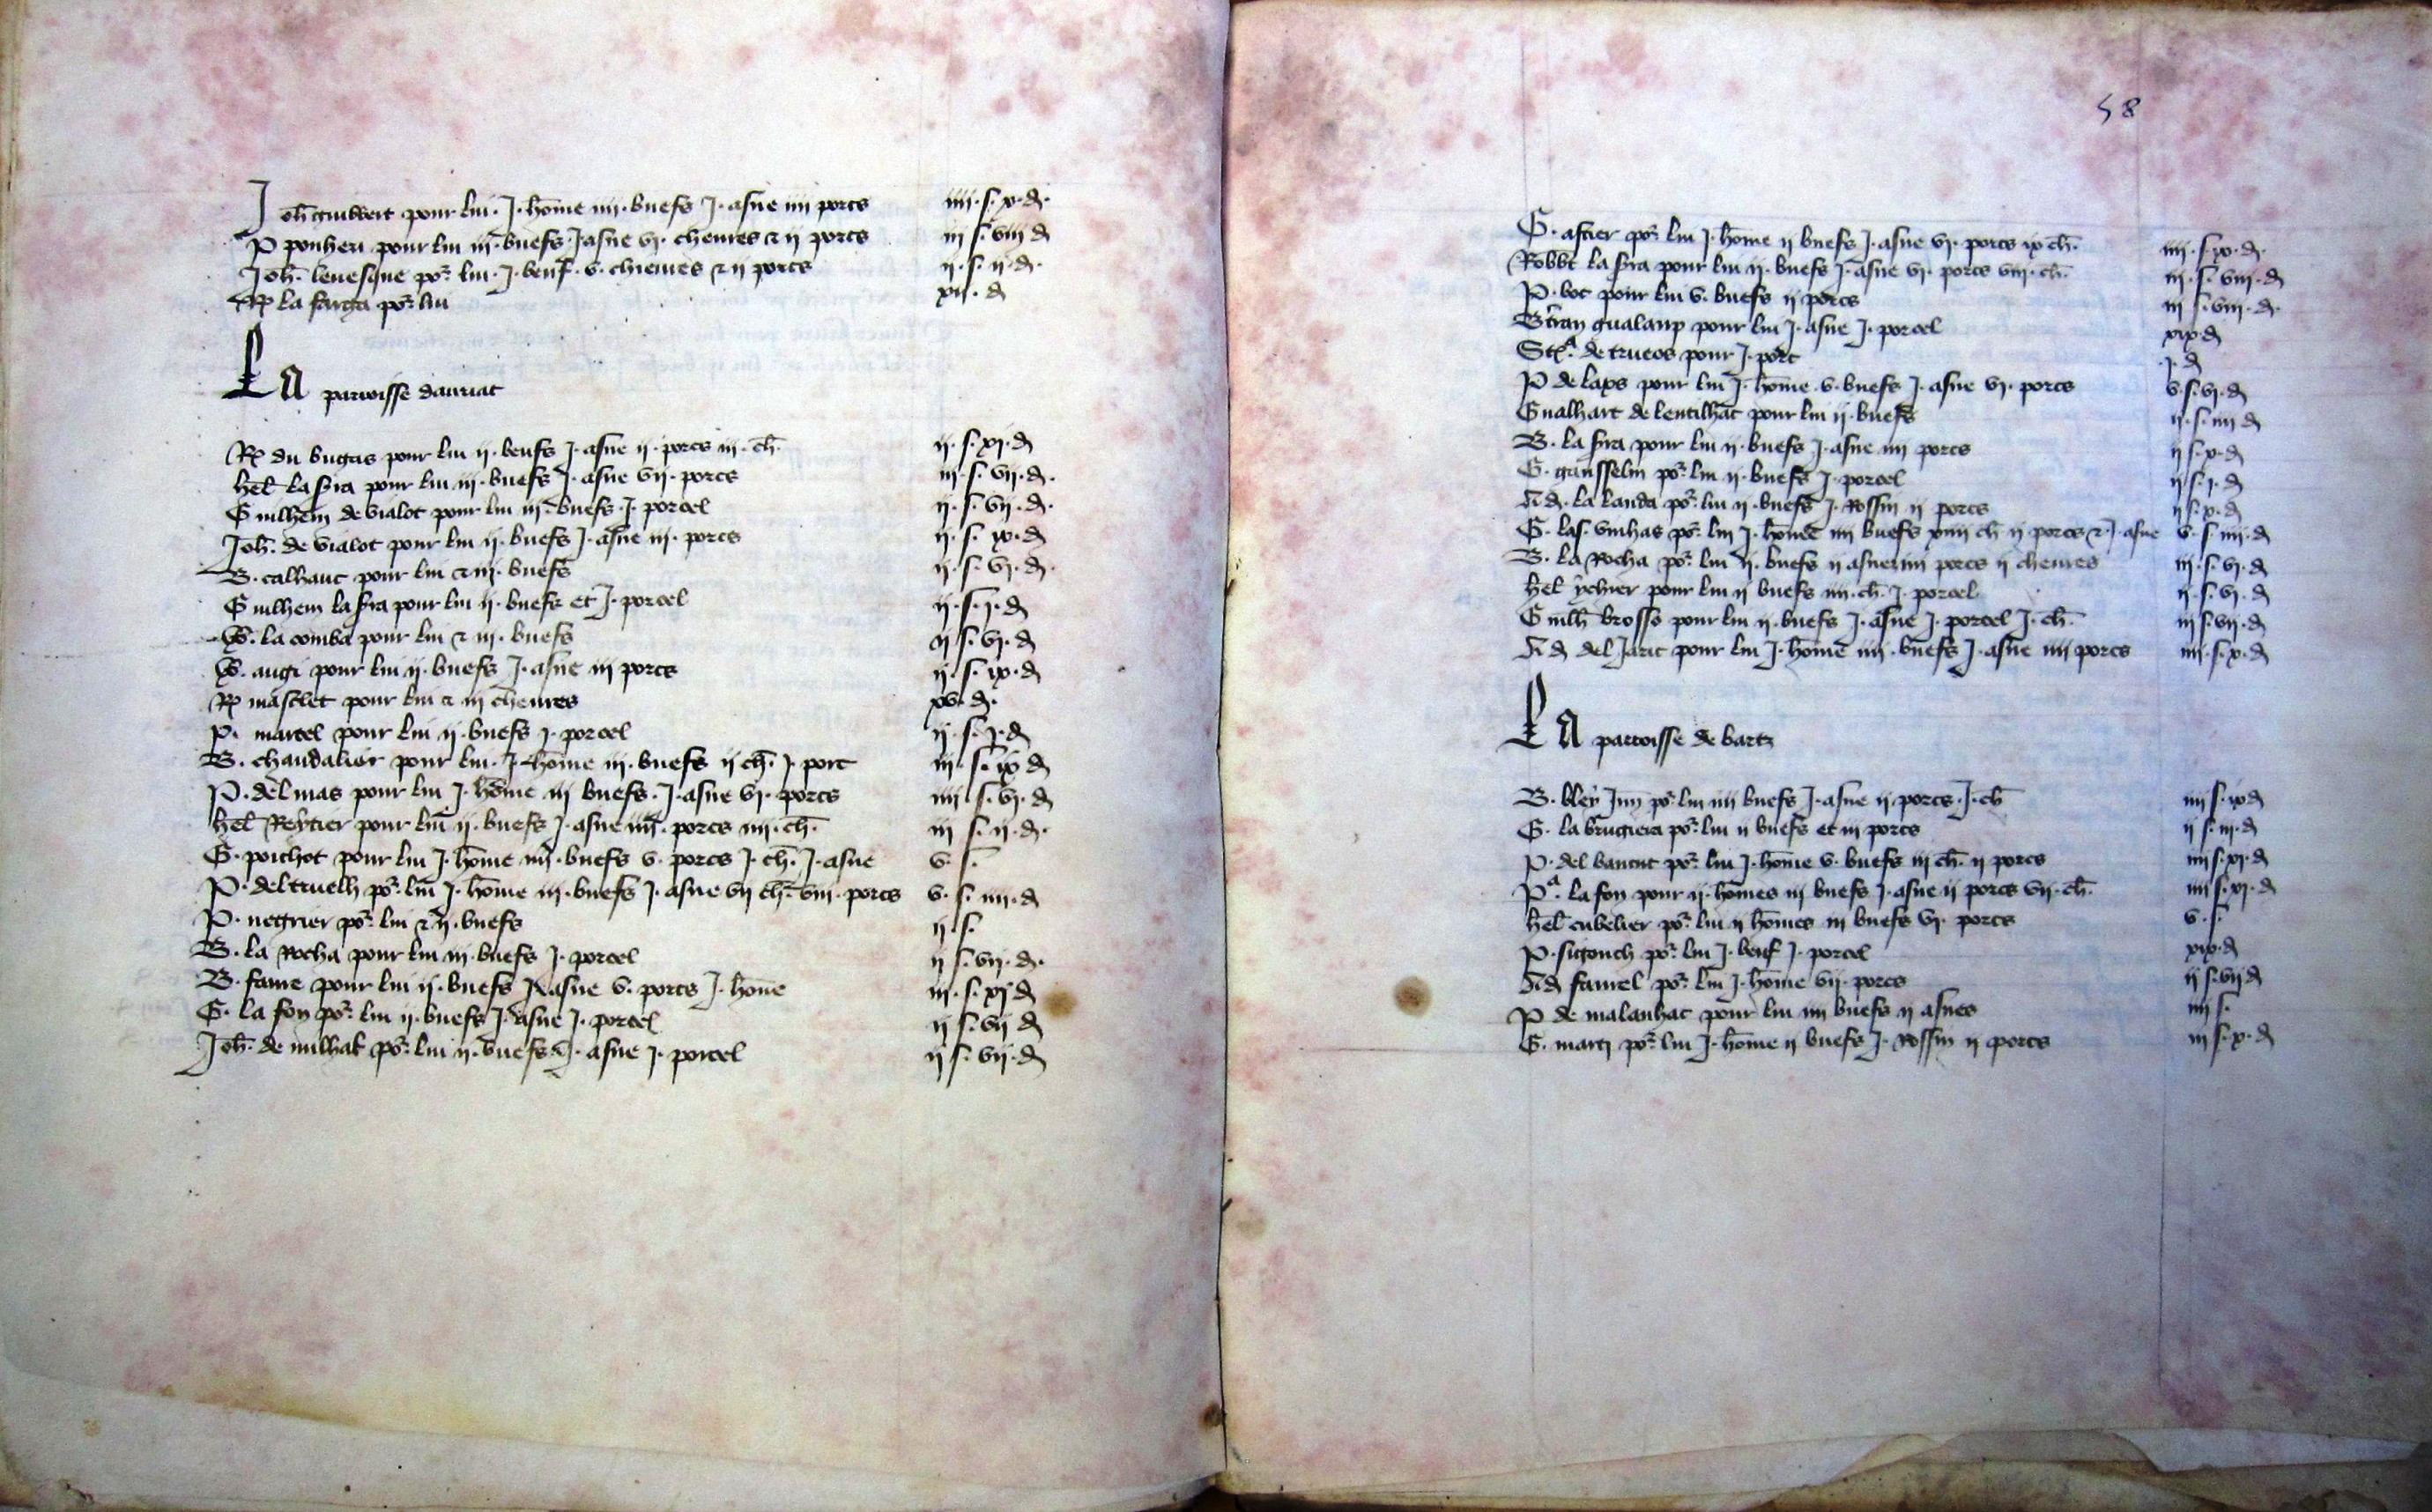 Joh guibbert pour lui · J · home iiii · buefs J · asne iiii porcs iiii · s · x · d ·
P ponheri pour lui iii · buefs · J asne vi · chevres & ii porcs iii s · viii d
Joh levesque por lui · J · beuf · v · chievres & ii porcs ii · s · ii · d ·
la farga por lui xii · d
La parroisse dauriac
R du bugas pour lui ii · beufs J · asne ii · porcs iii · ch ii · s · xi · d
hel la sira pour lui iii · buefs J · asne vii · porcs iii · s · vii · d ·
Guilhem de vialot pour lui iii · buefs · J · porcel ii · s · vii · d ·
Joh · de vialot pour lui ii · buefs J · asne iii · porcs ii · s · ix · d
B · calhauc pour lui & iii · buefs ii · s · vi · d ·
Guilhem la sira pour lui ii · buefs et J · porcel ii · s · i · d
W · la comba pour lui & iii · buefs ii s · vi · d
W · augi pour lui ii · buefs J · asne iii porcs ii · s · ix · d
R masclet pour lui & iii chevres xv · d ·
P · marcel pour lui ii · buefs J · porcel ii · s · J · d
B · chandalier pour lui · J · home iii · buefs ii ch · J · porc iii · s · ix d
P · del mas pour lui J · home iii buefs · J · asne vi · porcs iiii · s · vi · d
hel Reytier pour lui ii · buefs J · asne iiii · porcs iiii · ch · iii s · ii · d ·
G · poichot pour lui J · home iiii · buefs v · porcs J · ch · J · asne v · s ·
P · del truelh por lui J · home iii · buefs J · asne vii ch · viii · porcs v · s · iiii · d
P · negrier por lui & ii · buefs ii · s ·
B · la Rocha pour lui iii · buefs J · porcel ii s · vii · d ·
B · fame pour lui ii · buefs J · asne v · porcs J · home iii · s · xi d
G · la fon por lui ii · buefs J · asne J · porcel ii s · vii d
Joh · de milhac por lui ii · buefs J · asne J · porcel ii s · vii · d
58
G · astier por lui J · home ii buefs J · asne vi · porcs ix ch · iiii · s · ix · d ·
Robbt la sira pour lui ii · buefs J · asne vi · porcs viii · ch · iii · s · viii · d
P · boc pour lui v · buefs ii porcs iii s · viii · d ·
Btran gualaup pour lui J · asne J · porcel xix · d
de trueos pour J · porc J · d
P de laxs pour lui J · home v · buefs J · asne vi · porcs v · s · vi · d
Gualhart de lentilhac pour lui ii · buefs ii · s · iiii d
B · la sira pour lui ii · buefs J · asne iiii porcs ii s · x · d
G · gausselin por lui ii · buefs J · porcel ii s · i · d
Ad · la landa por lui ii · buefs J · Rossin ii porcs ii s · x · d
G · las vinhas por lui J · home iiii buefs xiiii ch ii porcs & J · asne v · s · iiii · d
B · la Rocha por lui ii · buefs ii asnes iiii porcs ii chevres iii · s · vi · d
hel ychier pour lui ii buefs iiii · ch · J · porcel ii · s · vi · d
Guilh brosso pour lui ii · buefs J · asne J · porcel J · ch · iii s · vii · d
Ad del Jaric pour lui J · home iiii · buefs J · asne iiii porcs iiii · s · x · d
La parroisse de bartz
B · bley por lui iiii buefs J · asne ii · porcs · J · ch iiii s · ix d
G · la brugiera por lui ii buefs et iii porcs ii s · iii · d
P · del bancut por lui J · home v · buefs iii ch · ii porcs iiii s · xi · d
Pa · la fon pour ii · homes iii buefs J · asne ii porcs vii · ch · iiii s · xi · d
hel cubelier por lui ii homes iii buefs vi · porcs v · s ·
P · sigonch por lui J · beuf J · porcel xix · d
Ad faurel por lui J · home vii · porcs ii s · vii d
P de malanhac pour lui iiii buefs ii asnes iiii s ·
G · marti por lui J · home ii buefs J · Rossin ii porcs iii s · x · d